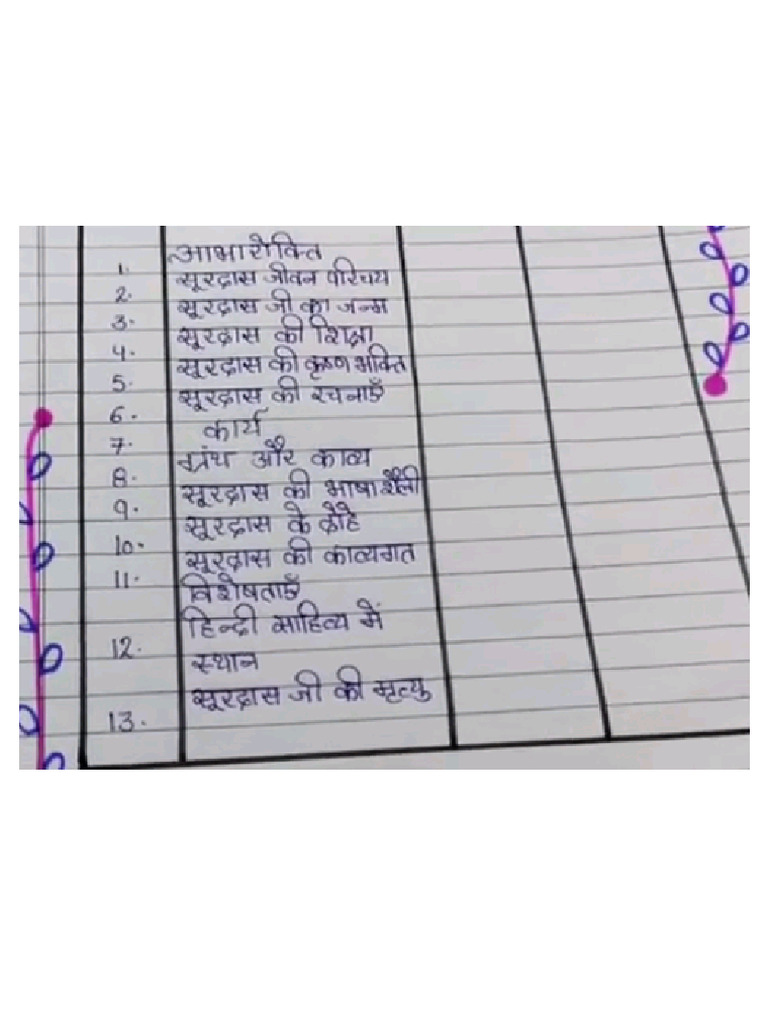 1. आभारोक्ति
2. सूरदास जीवन परिचय
3. सूरदास जी का जन्म
4. सूरदास की शिक्षा
5. सूरदास की कृष्ण भक्ति
6. सूरदास की रचनाएँ
7. कार्य
8. ग्रंथ और काव्य
9. सूरदास की भाषा शैली
10. सूरदास के दोहे
11. सूरदास की काव्यगत
विशेषताएँ
12. हिन्दी साहित्य में
स्थान
13. सूरदास जी की मृत्यु